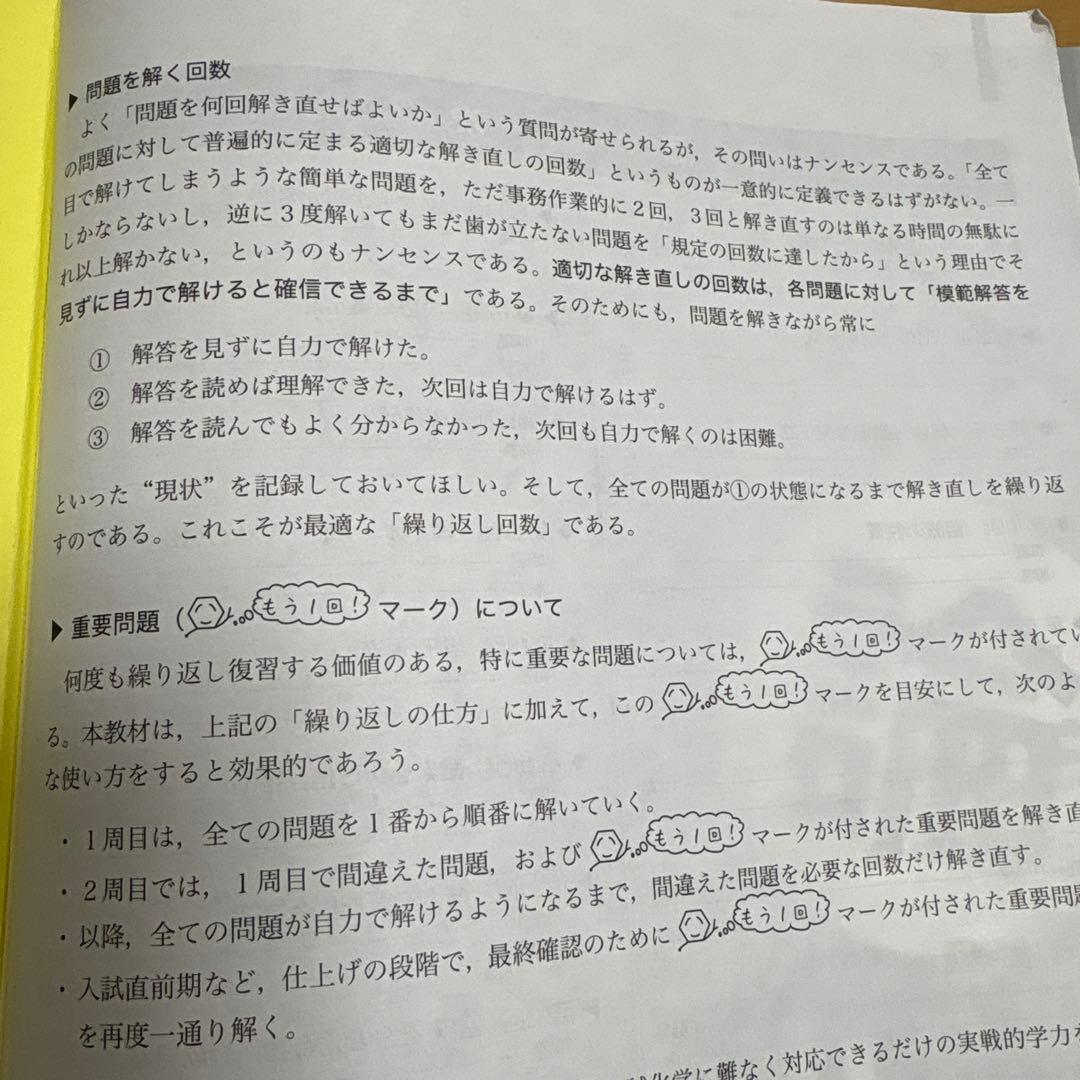 ▶ 問題を解く回数
よく「問題を何回解き直せばよいか」という質問が寄せられるが，その問いはナンセンスである。「全て
の問題に対して普遍的に定まる適切な解き直しの回数」というものが一意的に定義できるはずがない。一
目で解けてしまうような簡単な問題を，ただ事務作業的に２回，３回と解き直すのは単なる時間の無駄に
しかならないし，逆に３度解いてもまだ歯が立たない問題を「規定の回数に達したから」という理由でそ
れ以上解かない，というのもナンセンスである。適切な解き直しの回数は，各問題に対して「模範解答を
見ずに自力で解けると確信できるまで」である。そのためにも，問題を解きながら常に
① 解答を見ずに自力で解けた。
② 解答を読めば理解できた，次回は自力で解けるはず。
③ 解答を読んでもよく分からなかった，次回も自力で解くのは困難。
といった“現状”を記録しておいてほしい。そして，全ての問題が①の状態になるまで解き直しを繰り返
すのである。これこそが最適な「繰り返し回数」である。
▶ 重要問題（もう1回！マーク）について
何度も繰り返し復習する価値のある，特に重要な問題については，もう1回！マークが付されてい
る。本教材は，上記の「繰り返しの仕方」に加えて，このもう1回！マークを目安にして，次のよ
な使い方をすると効果的であろう。
・１周目は，全ての問題を１番から順番に解いていく。
・２周目では，１周目で間違えた問題，およびもう1回！マークが付された重要問題を解き直
・以降，全ての問題が自力で解けるようになるまで，間違えた問題を必要な回数だけ解き直す。
・入試直前期など，仕上げの段階で，最終確認のためにもう1回！マークが付された重要問題
を再度一通り解く。
化学に難なく対応できるだけの実戦的学力を